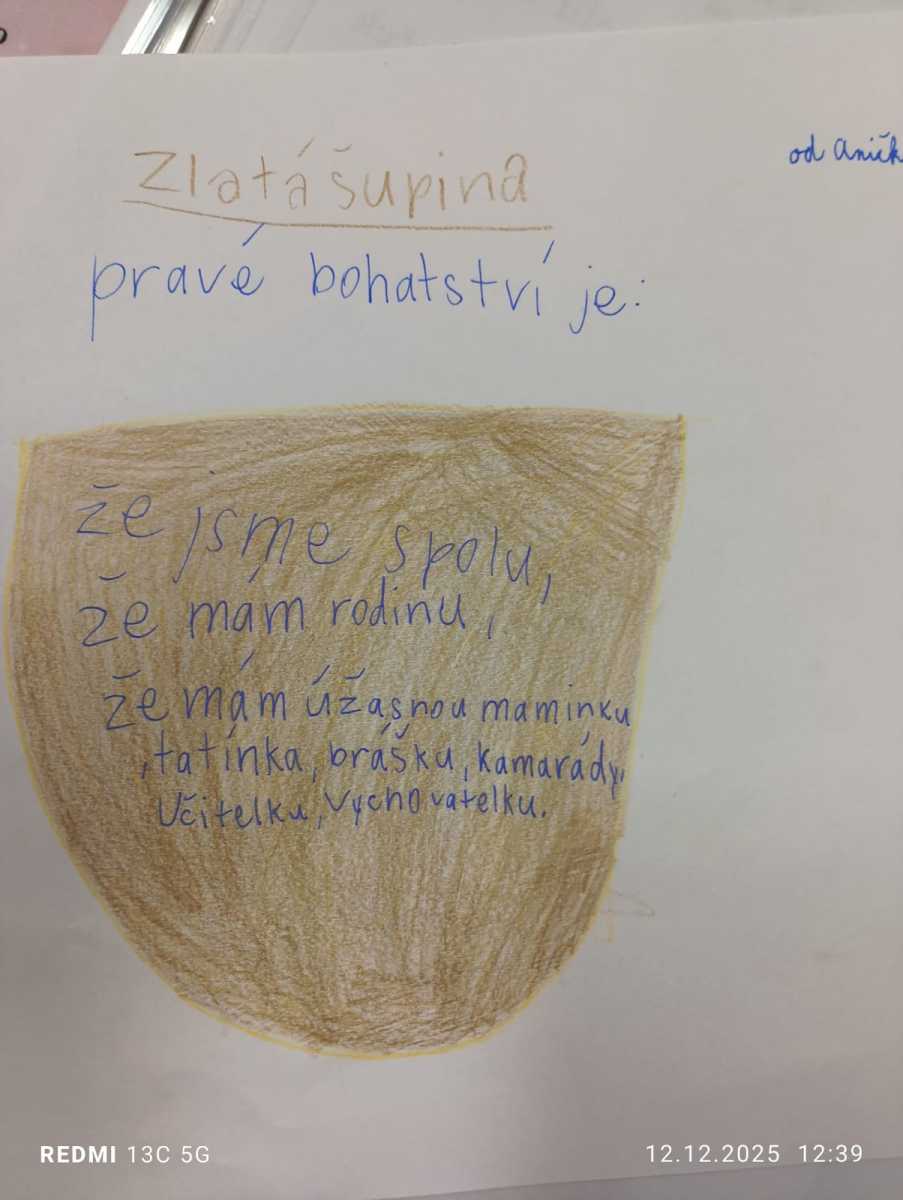 od Aničk
Zlatá šupina
pravé bohatství je:
že jsme spolu,
že mám rodinu,
že mám úžasnou maminku
,tatínka, brášku, kamarády,
Učitelku, Vychovatelku.
REDMI 13C 5G
12.12.2025 12:39